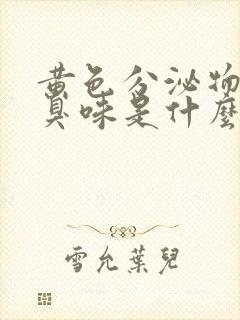 黃色分泌物
臭味是什麼
雪允葉兒